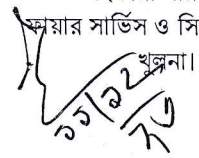 ফায়ার সার্ভিস ও সি
খুলনা।
১১/১২/২৩